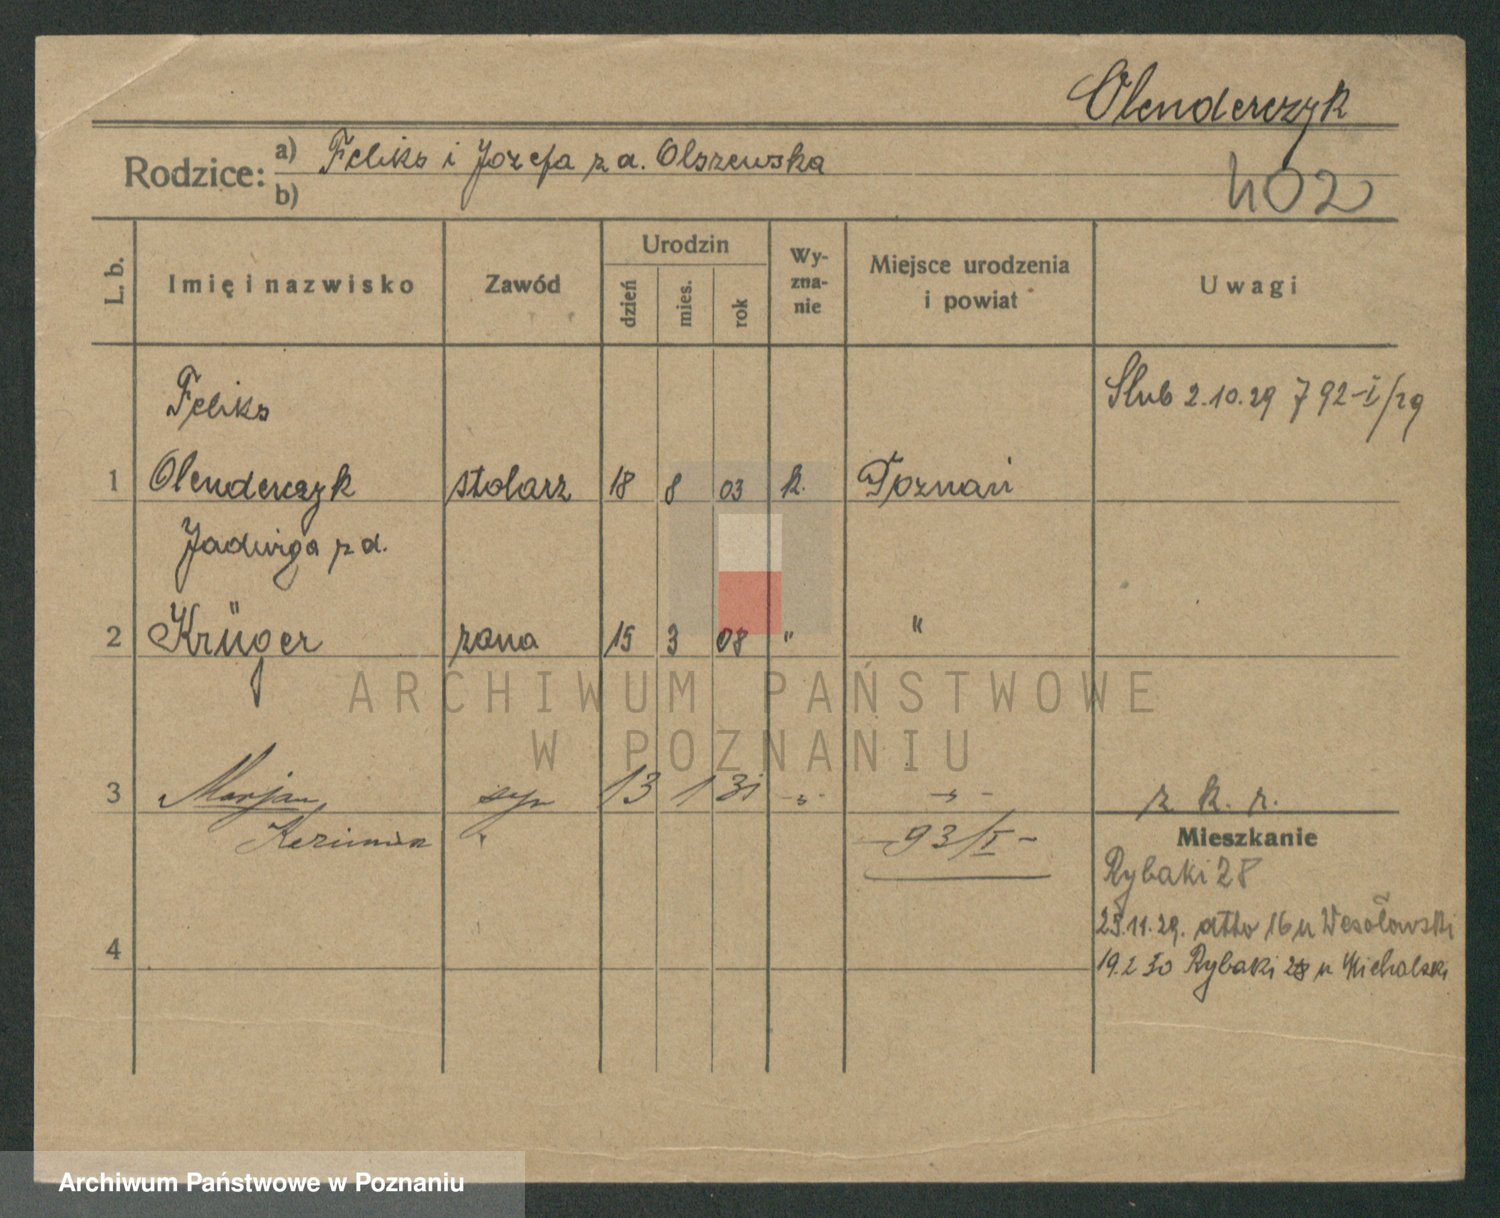 Olenderczyk
Rodzice: a) Feliks i Józefa z d. Olszewska
b)
402
L. b.
Imię i nazwisko
Zawód
Urodzin
dzień
mies.
rok
Wy-
zna-
nie
Miejsce urodzenia
i powiat
Uwagi
Feliks
Ślub 2.10.29 792-I/29
1 Olenderczyk stolarz 18 8 03 k. Poznań
Jadwiga z d.
2 Krüger żona 15 3 08 " "
ARCHIWUM PAŃSTWOWE
W POZNANIU
3 Marjan syn 13 1 31 -"- -"-
z k. r.
Kazimierz
-93/I-
Mieszkanie
Rybaki 28
25.11.29. dtto 16 u Wesołowski
4
19.2 30 Rybaki 28 u Michalski
Archiwum Państwowe w Poznaniu